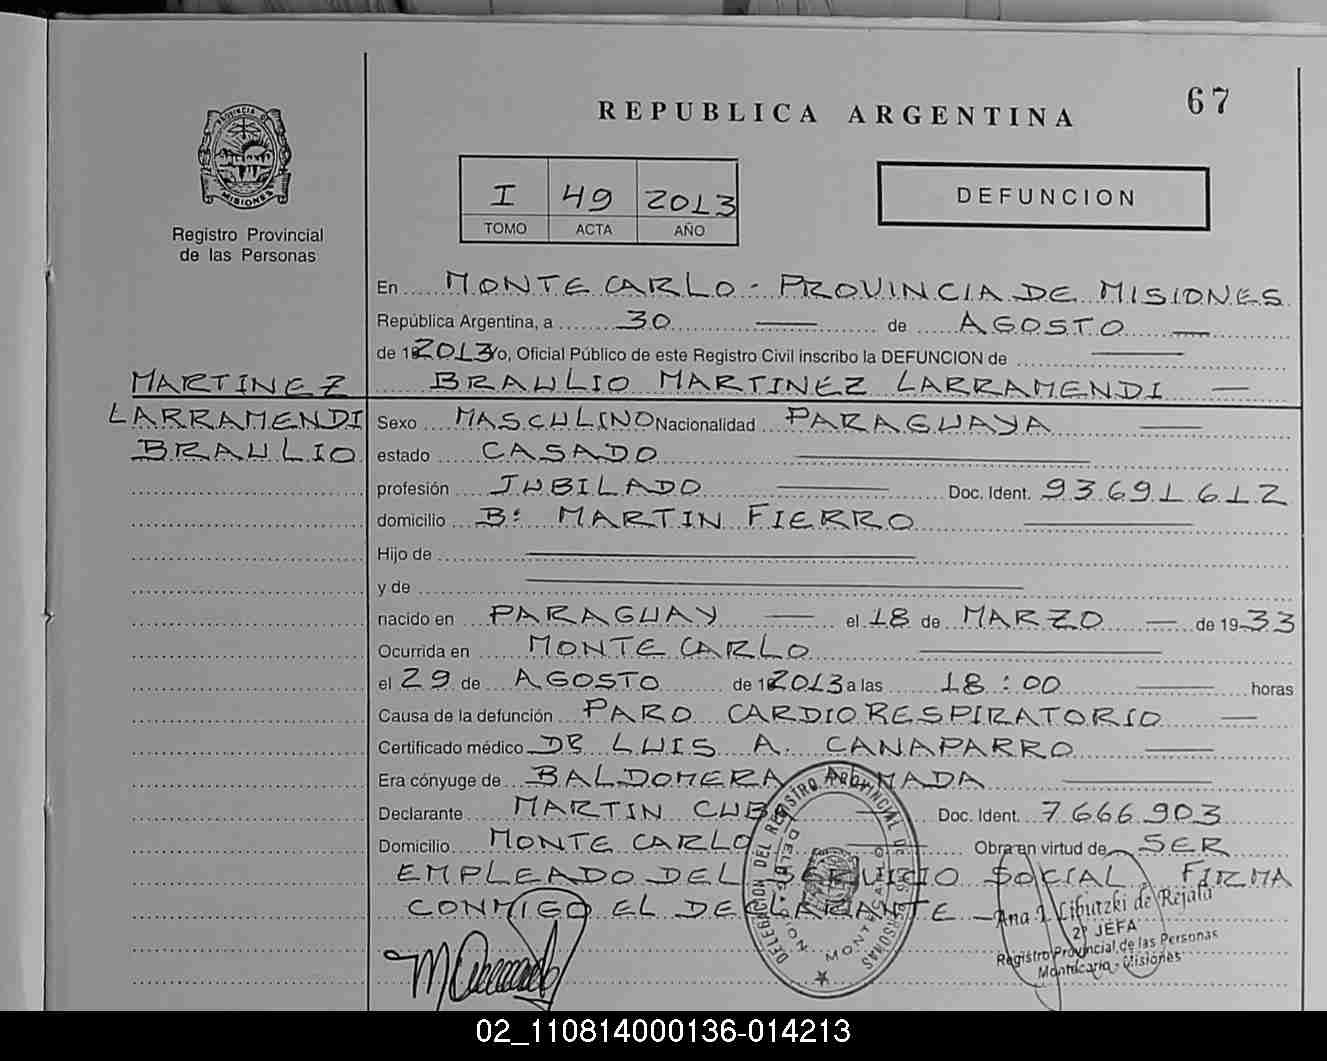 67
REPUBLICA ARGENTINA
PROVINCIA DE
MISIONES
Registro Provincial
de las Personas
I 49 2013
TOMO ACTA AÑO
DEFUNCION
En MONTE CARLO - PROVINCIA DE MISIONES
República Argentina, a 30 de AGOSTO
de 2013 yo, Oficial Público de este Registro Civil inscribo la DEFUNCION de
BRAULIO MARTINEZ LARRAMENDI
MARTINEZ
LARRAMENDI
BRAULIO
Sexo MASCULINO Nacionalidad PARAGUAYA
estado CASADO
profesión JUBILADO Doc. Ident. 93.691.612
domicilio Bº MARTIN FIERRO
Hijo de
y de
nacido en PARAGUAY el 18 de MARZO de 1933
Ocurrida en MONTE CARLO
el 29 de AGOSTO de 2013 a las 18:00 horas
Causa de la defunción PARO CARDIORESPIRATORIO
Certificado médico DR LUIS A. CANAPARRO
Era cónyuge de BALDOMERA
Declarante MARTIN Doc. Ident. 7.666.903
Domicilio MONTE CARLO Obra en virtud de SER
EMPLEADO DEL SERVICIO SOCIAL FIRMA
CONMIGO EL DECLARANTE
DELEGACION DEL REGISTRO PROVINCIAL DE LAS PERSONAS
MONTECARLO
Ana I. Libutzki de Rejala
2º JEFA
Registro Provincial de las Personas
Montecarlo - Misiones
02_110814000136-014213